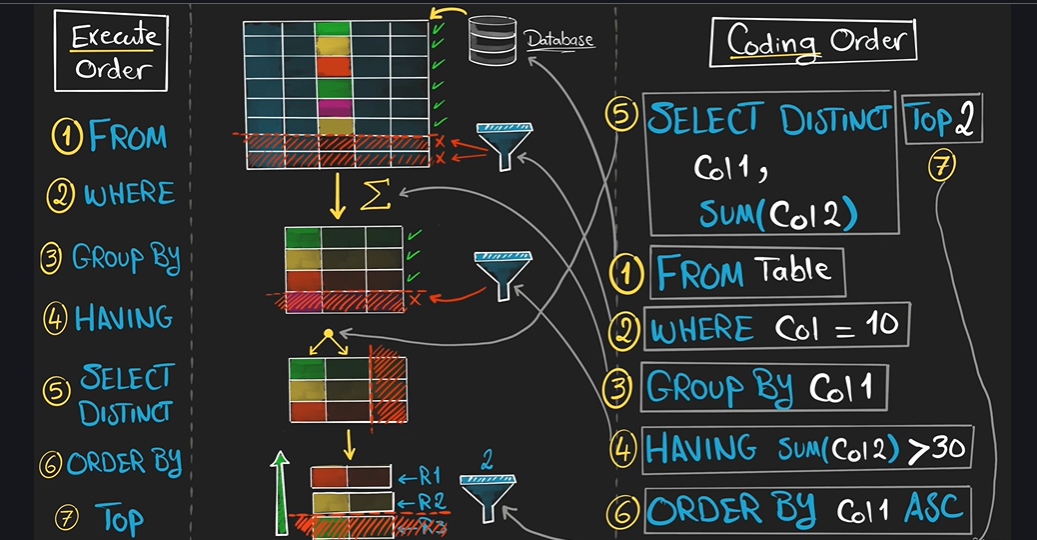 Execute
Order
① FROM
② WHERE
③ GROUP BY
④ HAVING
⑤ SELECT
DISTINCT
⑥ ORDER BY
⑦ TOP
Database
✓
✓
✓
✓
✓
✓
X
X
Σ
✓
✓
✓
X
R1
R2
R3
2
Coding Order
⑤ SELECT DISTINCT TOP 2
Col1,
⑦
SUM(Col2)
① FROM Table
② WHERE Col = 10
③ GROUP BY Col1
④ HAVING SUM(Col2) >30
⑥ ORDER BY Col1 ASC